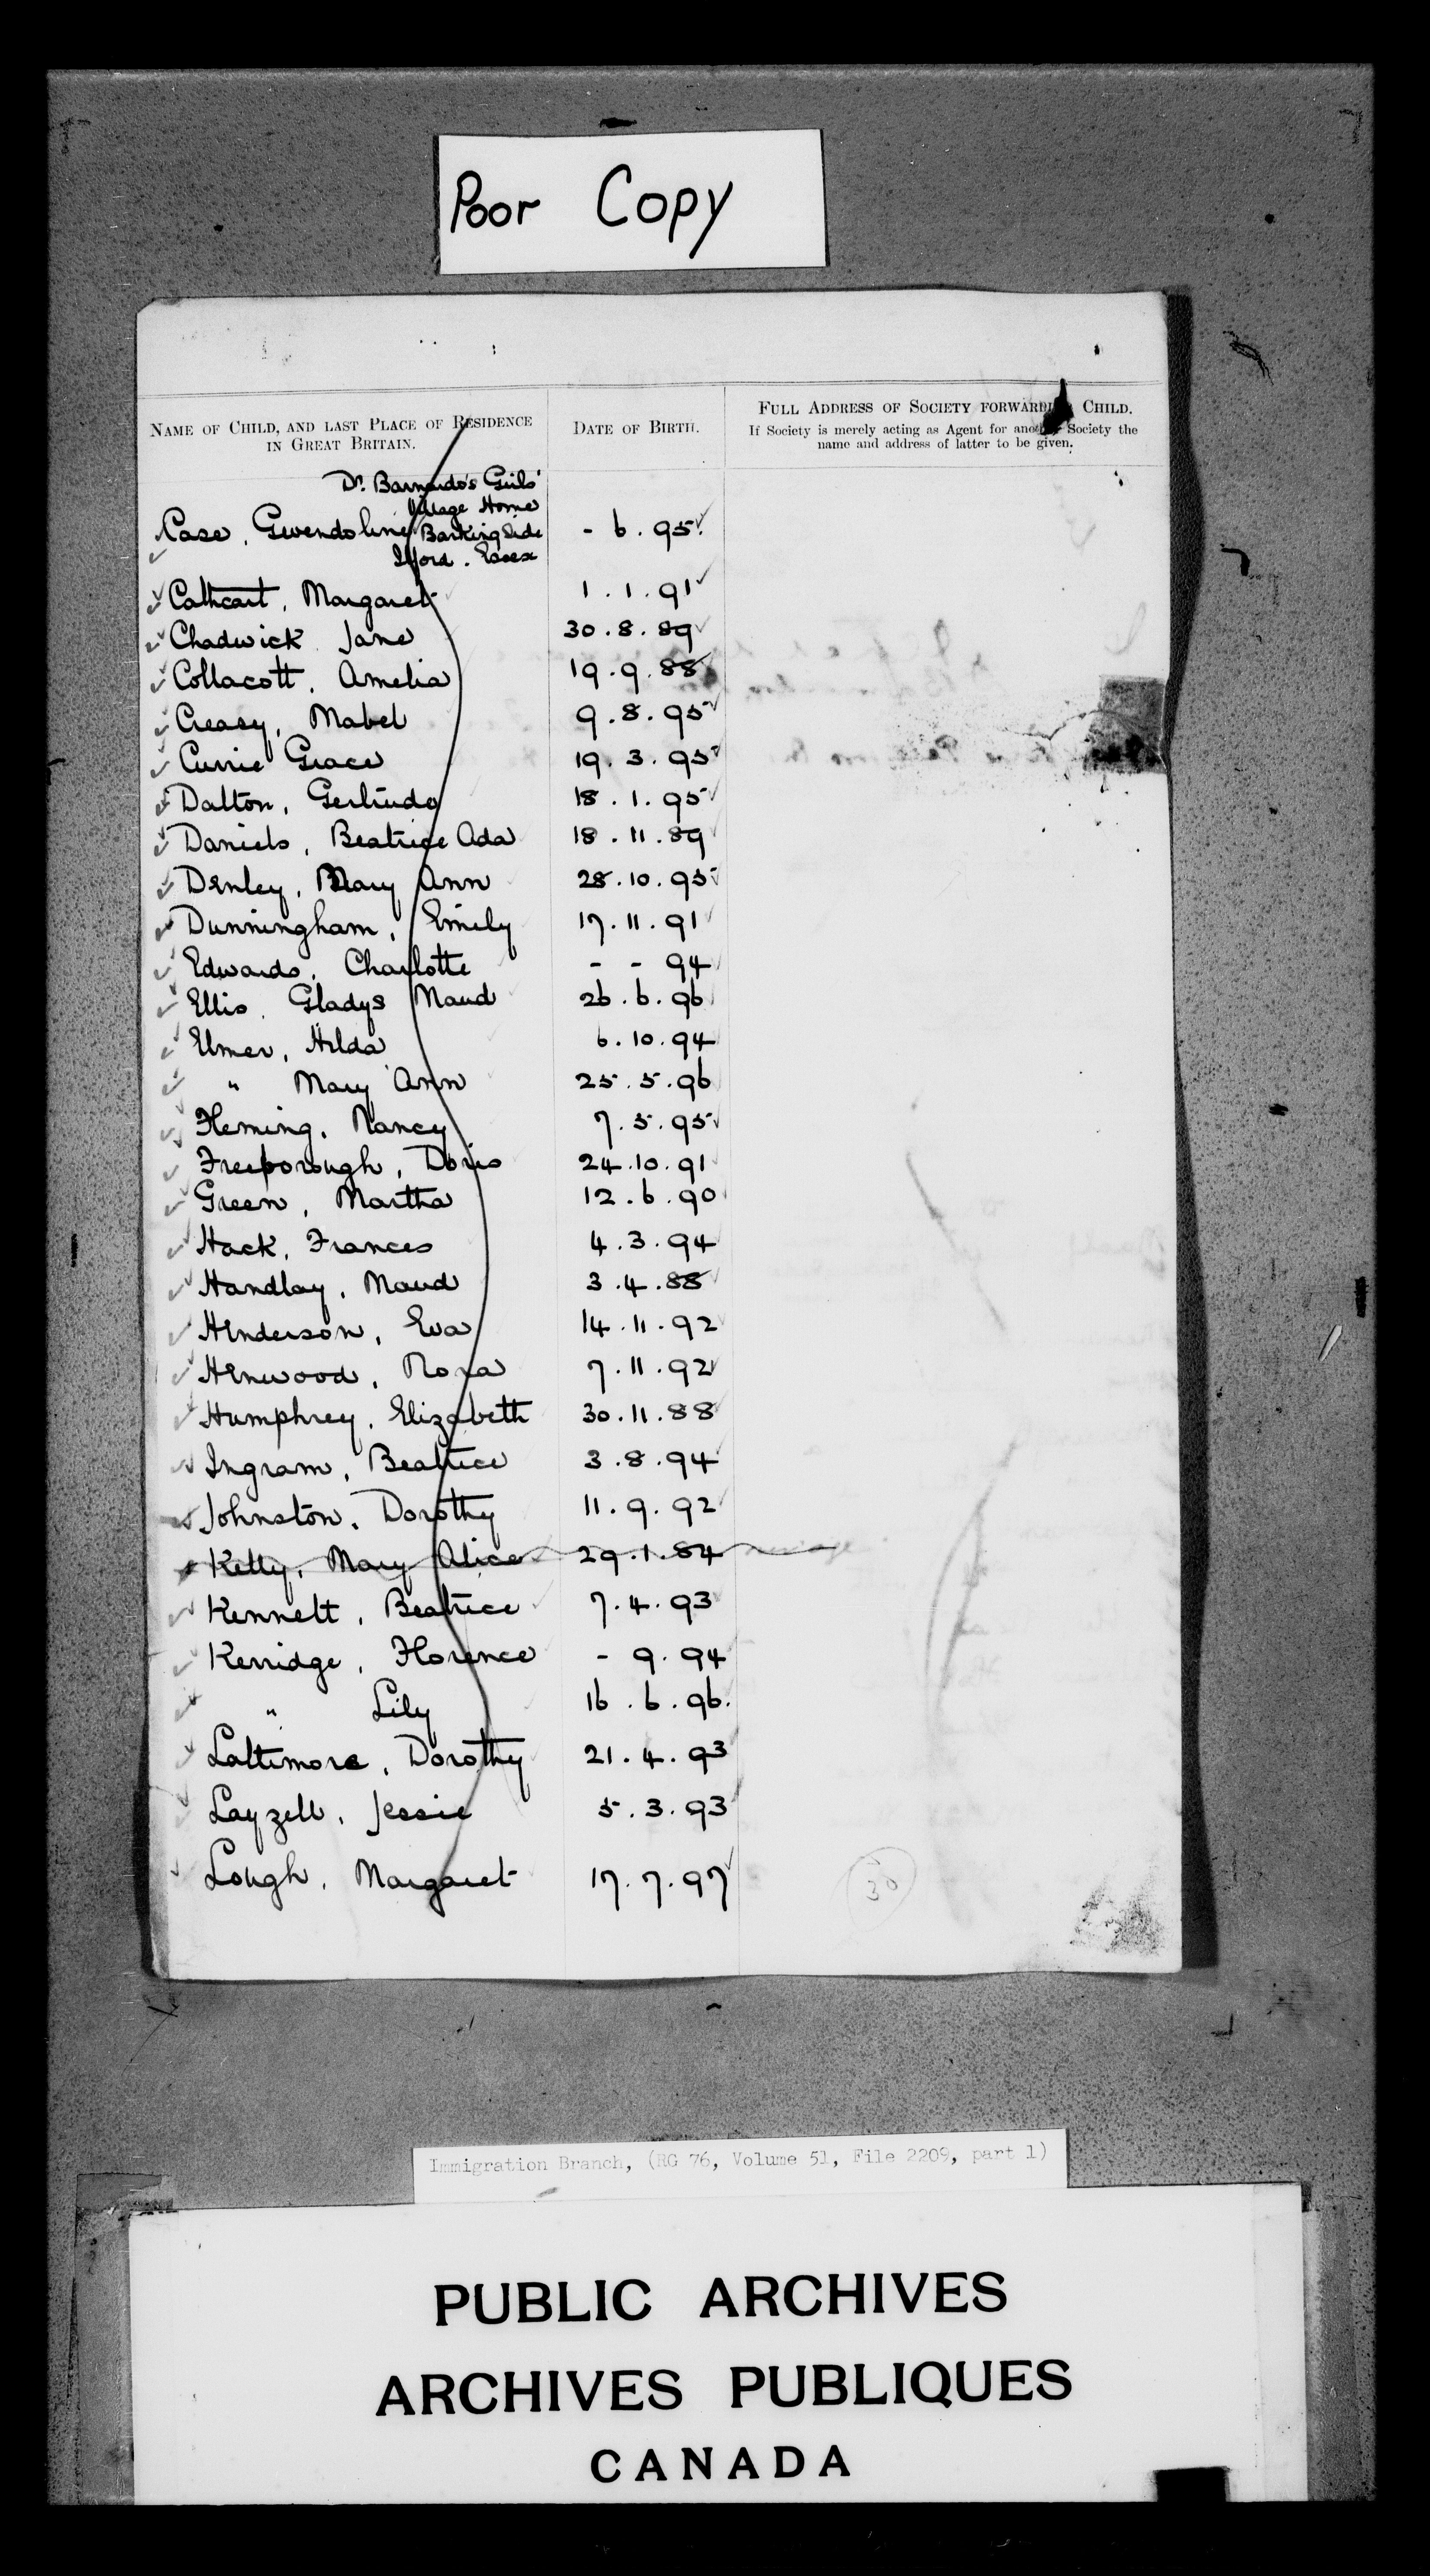 Poor Copy
NAME OF CHILD, AND LAST PLACE OF RESIDENCE
IN GREAT BRITAIN.
DATE OF BIRTH.
FULL ADDRESS OF SOCIETY FORWARDING CHILD.
If Society is merely acting as Agent for another Society the
name and address of latter to be given.
Dr. Barnardo's Girls'
Village Home
Case, Gwendoline Barkingside - 6.95
Ilford. Essex
Cathcart, Margaret 1.1.91
Chadwick Jane 30.8.89
Collacott, Amelia 19.9.88
Creasy, Mabel 9.8.95
Currie Grace 19.3.95
Dalton, Gertrude 18.1.95
Daniels, Beatrice Ada 18.11.89
Denley, Mary Ann 28.10.95
Dunningham, Emily 17.11.91
Edwards, Charlotte - - 94
Ellis, Gladys Maud 26.6.96
Elmer, Hilda 6.10.94
" Mary Ann 25.5.96
Fleming, Nancy 7.5.95
Freeborough, Doris 24.10.91
Green, Martha 12.6.90
Hack, Frances 4.3.94
Handlay, Maud 3.4.88
Henderson, Eva 14.11.92
Henwood, Nora 7.11.92
Humphrey, Elizabeth 30.11.88
Ingram, Beatrice 3.8.94
Johnston, Dorothy 11.9.92
Kelly, Mary Alice 29.1.84
Kennett, Beatrice 7.4.93
Kerridge, Florence - 9.94
" Lily 16.6.96.
Lattimore, Dorothy 21.4.93
Layzell, Jessie 5.3.93
Lough, Margaret 17.7.97
30
Immigration Branch, (RG 76, Volume 51, File 2209, part 1)
PUBLIC ARCHIVES
ARCHIVES PUBLIQUES
CANADA